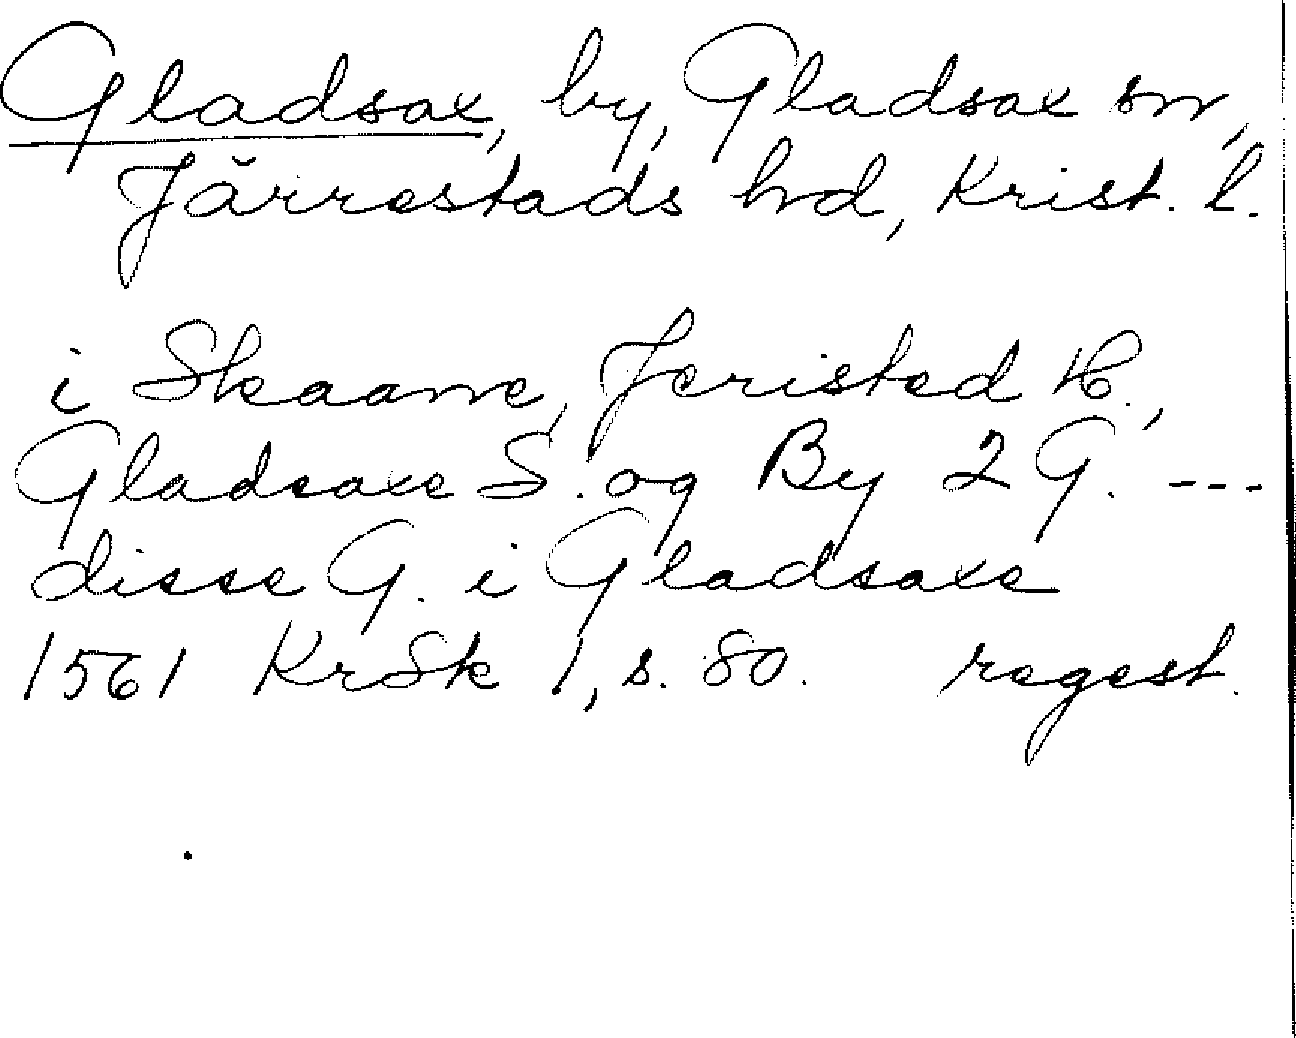 Gladsax, by, Gladsax sn,
Järrestads hd, Krist. l.
i Skaane, Jeristed H.,
Gladsaxe S. og By 2 G. ---
disse G. i Gladsaxe
1561 KrSk 1, s. 80. regest.